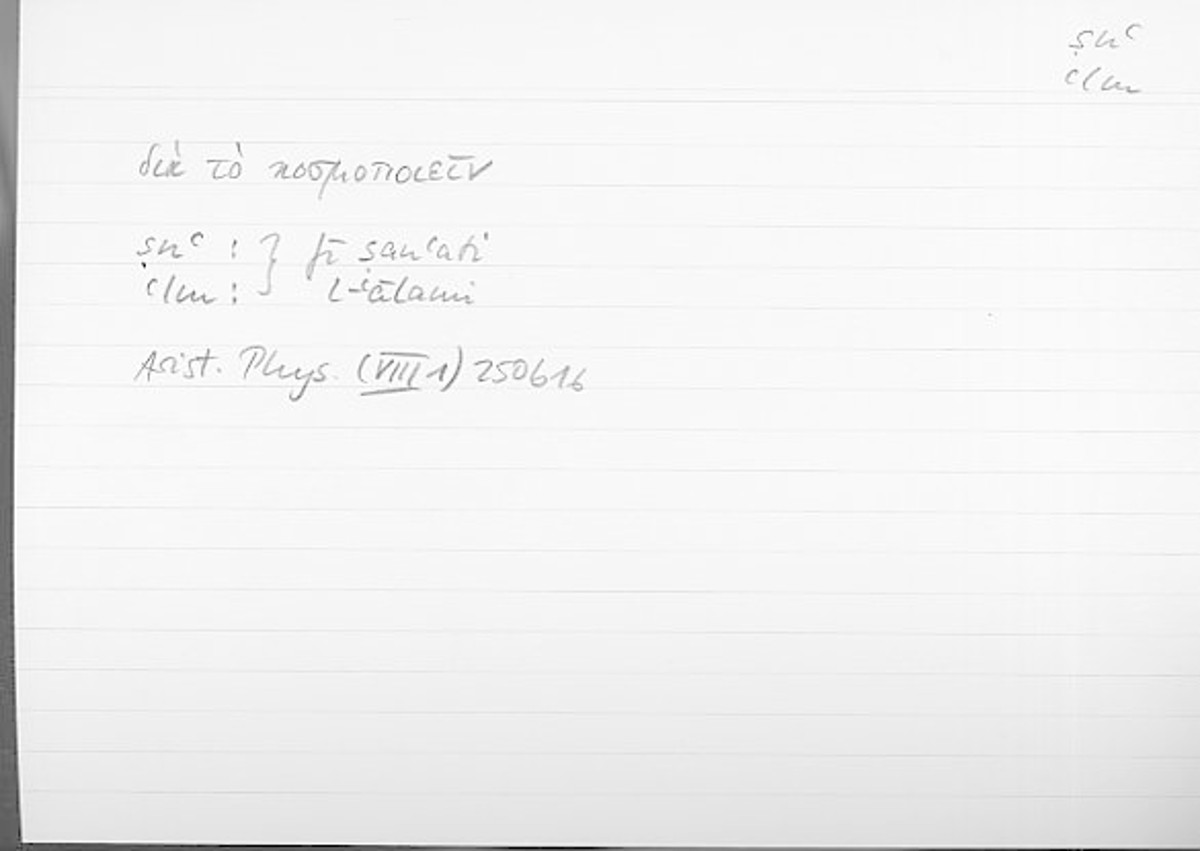 ṣnʿ
ʿlm
διὰ τὸ κοσμοποιεῖν
ṣnʿ : } fī ṣanʿati
ʿlm : l-ʿālami
Arist. Phys. (VIII 1) 250b16